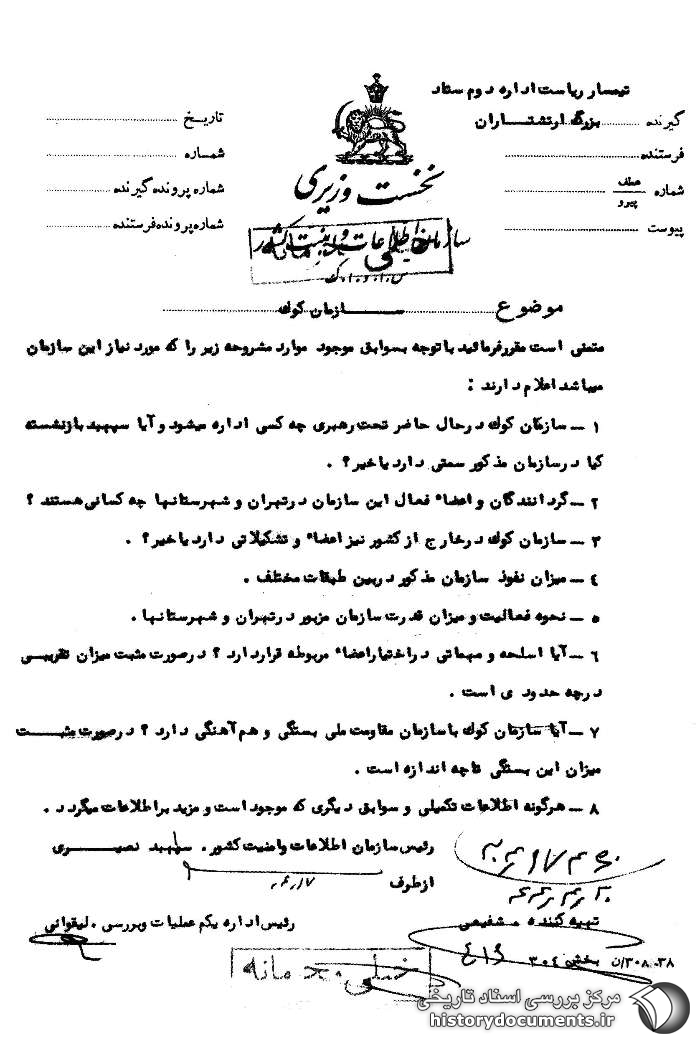 تیمسار ریاست اداره دوم ستاد
گیرنده بزرگ ارتشتاران
فرستنده
شماره عطف
پیرو
پیوست
نخست وزیری
سازمان اطلاعات و امنیت کشور
س.ا.و.ا.ک
تاریخ
شماره
شماره پرونده گیرنده
شماره پرونده فرستنده
موضوع سازمان کوک
متمنی است مقررفرمائید باتوجه بسوابق موجود موارد مشروحه زیر را که مورد نیاز این سازمان
میباشد اعلام دارند :
۱ ــ سازمان کوک درحال حاضر تحت رهبری چه کسی اداره میشود و آیا سپهبد بازنشسته
کیا درسازمان مذکور سمتی دارد یا خیر ؟ .
۲ ــ گردانندگان و اعضاء فعال این سازمان درتهران و شهرستانها چه کسانی هستند ؟
۳ ــ سازمان کوک درخارج از کشور نیز اعضاء و تشکیلاتی دارد یاخیر ؟ .
٤ ــ میزان نفوذ سازمان مذکور دربین طبقات مختلف .
۵ ــ نحوه فعالیت و میزان قدرت سازمان مزبور درتهران و شهرستانها .
٦ ــ آیا اسلحه و مهماتی دراختیاراعضاء مربوطه قراردارد ؟ درصورت مثبت میزان تقریبی
درچه حدودی است .
۷ ــ آیا سازمان کوک باسازمان مقاومت ملی بستگی و هم‌آهنگی دارد ؟ درصورت مثبت
میزان این بستگی تاچه اندازه است .
۸ ــ هرگونه اطلاعات تکمیلی و سوابق دیگری که موجود است و مزید براطلاعات میگردد .
رئیس سازمان اطلاعات وامنیت کشور . سپهبد نصیری
ازطرف
تهیه کننده . شفیعی
رئیس اداره یکم عملیات وبررسی . لیقوانی
بخش ۳۰٤
۳۰۸/ن
خیلی محرمانه
مرکز بررسی اسناد تاریخی
historydocuments.ir